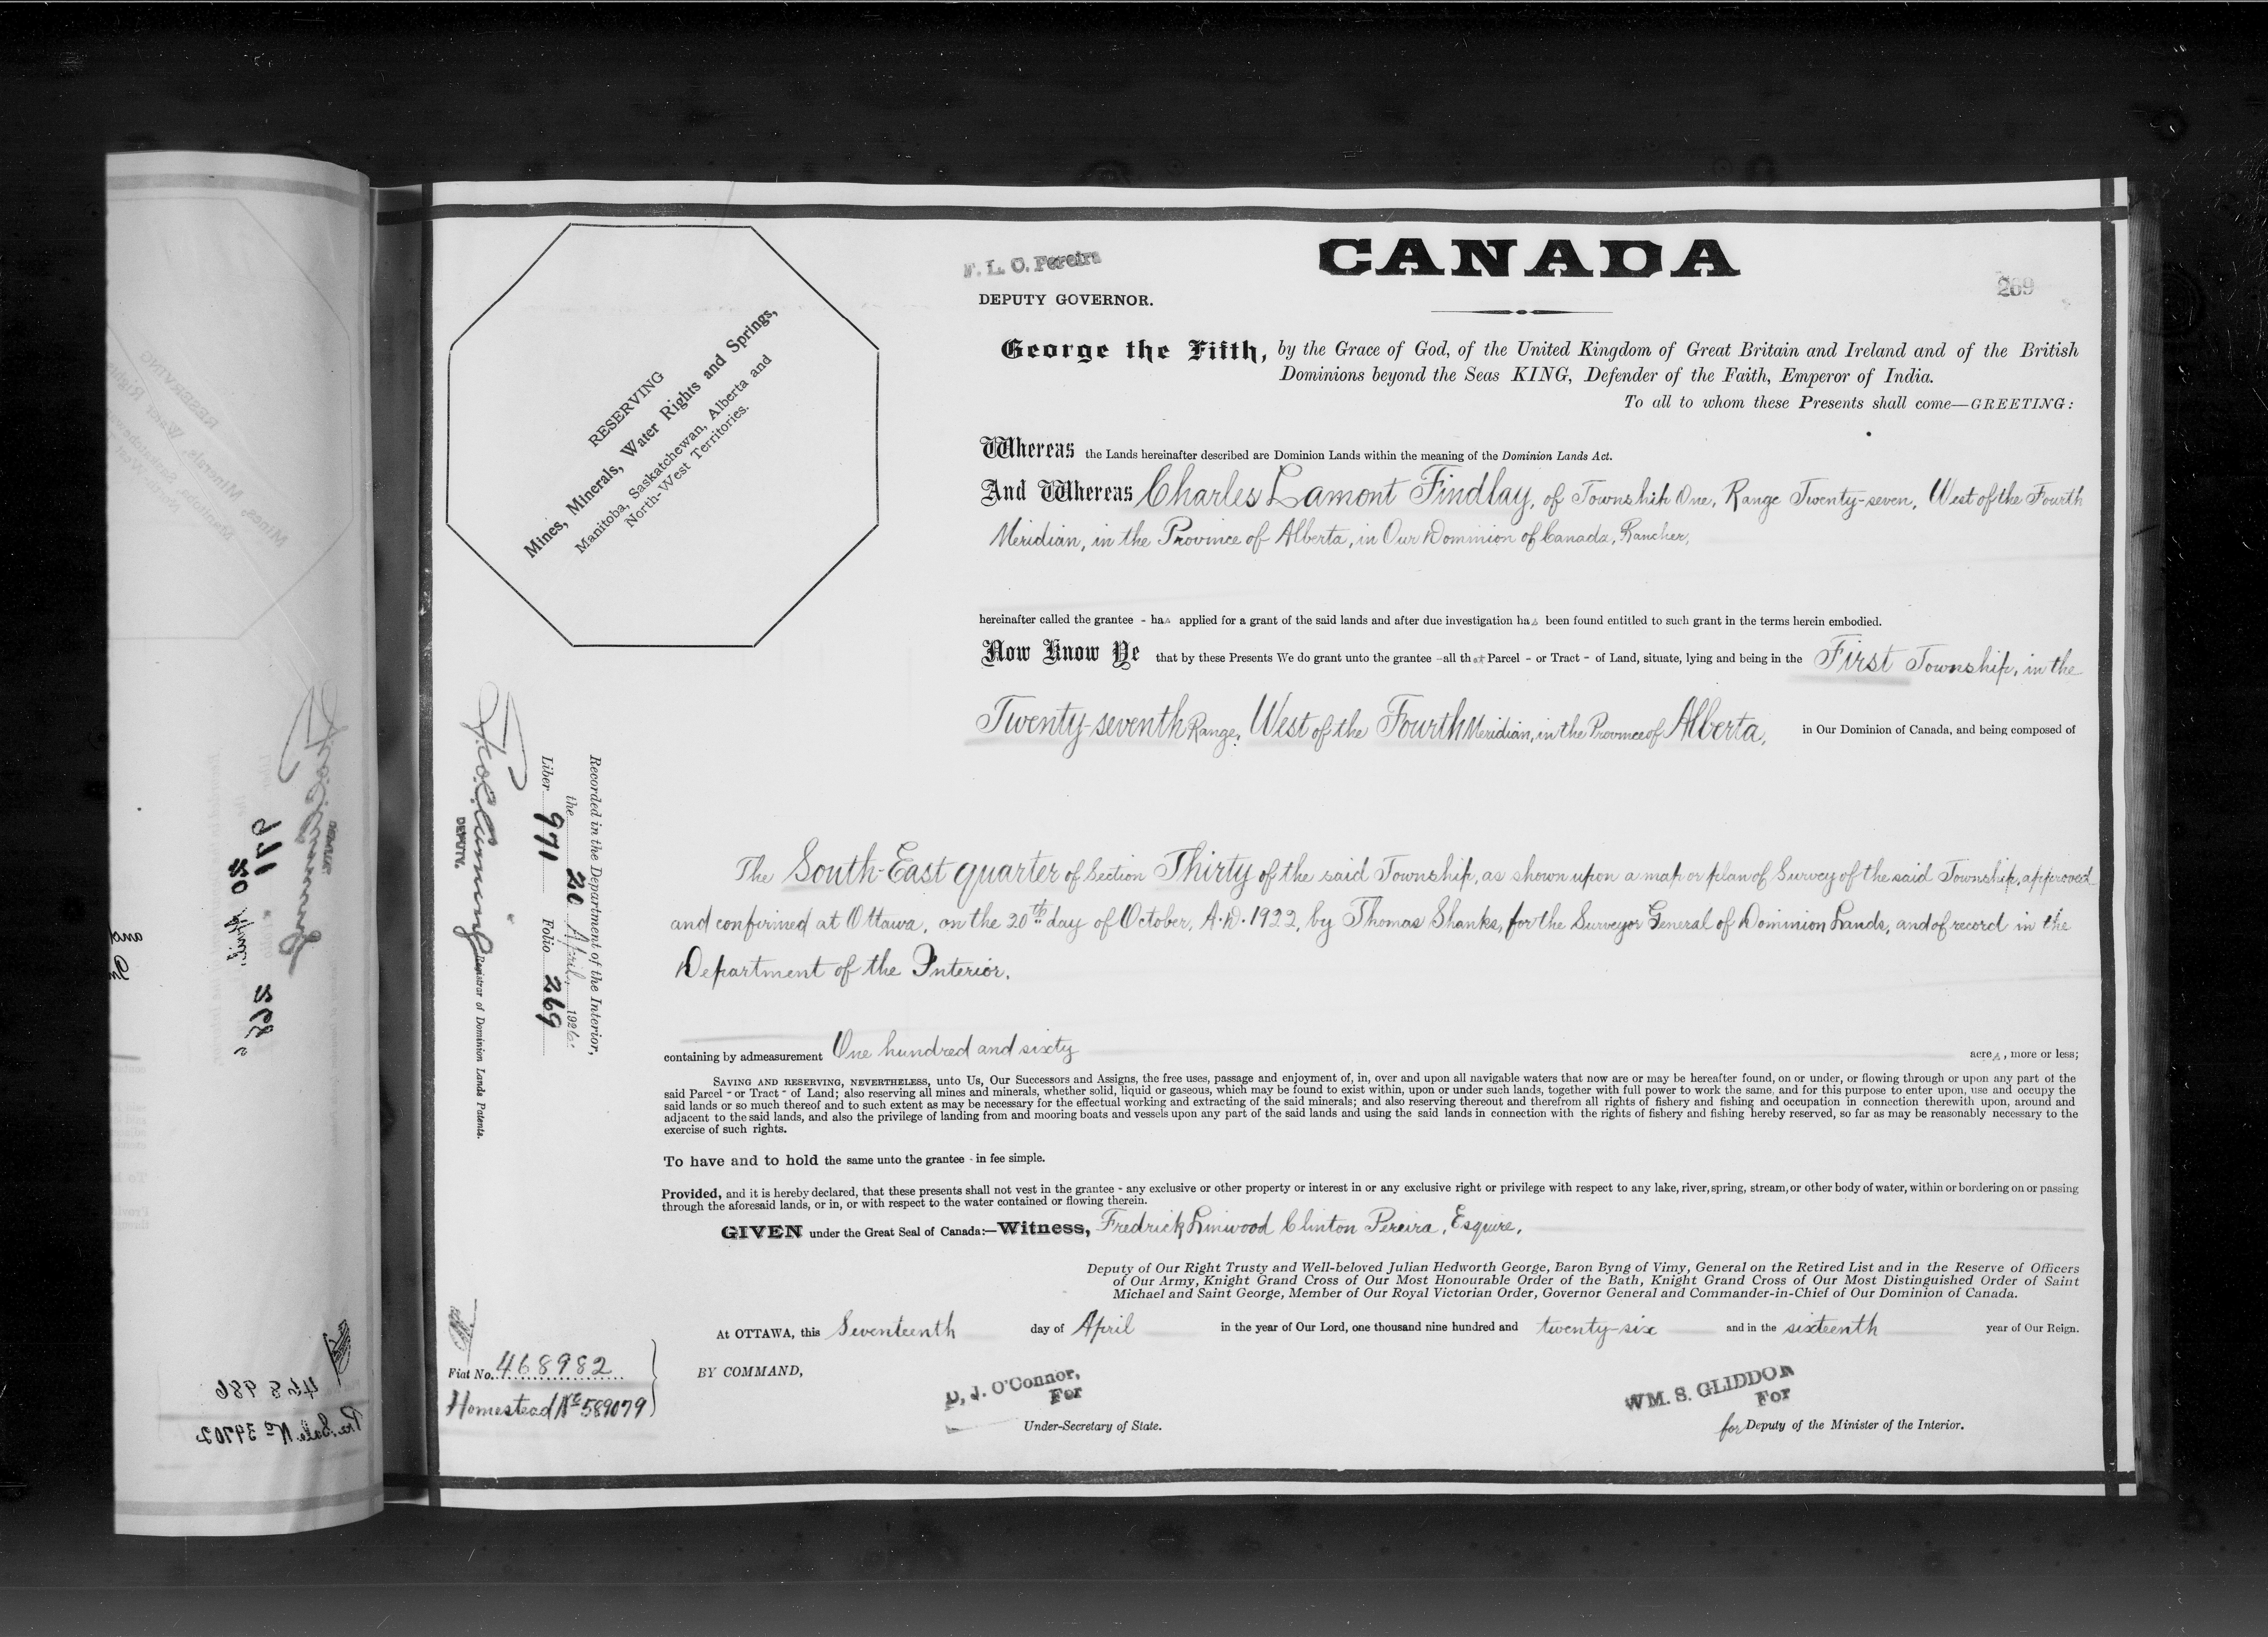 F. L. C. Pereira
DEPUTY GOVERNOR.
CANADA
269
RESERVING
Mines, Minerals, Water Rights and Springs,
Manitoba, Saskatchewan, Alberta and
North-West Territories.
George the Fifth, by the Grace of God, of the United Kingdom of Great Britain and Ireland and of the British
Dominions beyond the Seas KING, Defender of the Faith, Emperor of India.
To all to whom these Presents shall come—GREETING:
Whereas the Lands hereinafter described are Dominion Lands within the meaning of the Dominion Lands Act.
And Whereas Charles Lamont Findlay, of Township One, Range Twenty-seven, West of the Fourth
Meridian, in the Province of Alberta, in Our Dominion of Canada, Rancher,
hereinafter called the grantee - has applied for a grant of the said lands and after due investigation has been found entitled to such grant in the terms herein embodied.
Now Know Ye that by these Presents We do grant unto the grantee - all that Parcel - or Tract - of Land, situate, lying and being in the First Township, in the
Twenty-seventh Range, West of the Fourth Meridian, in the Province of Alberta, in Our Dominion of Canada, and being composed of
The South-East quarter of Section Thirty of the said Township, as shown upon a map or plan of Survey of the said Township, approved
and confirmed at Ottawa, on the 20th day of October, A.D. 1922, by Thomas Shanks, for the Surveyor General of Dominion Lands, and of record in the
Department of the Interior.
containing by admeasurement One hundred and sixty acres, more or less;
SAVING AND RESERVING, NEVERTHELESS, unto Us, Our Successors and Assigns, the free uses, passage and enjoyment of, in, over and upon all navigable waters that now are or may be hereafter found, on or under, or flowing through or upon any part of the
said Parcel - or Tract - of Land; also reserving all mines and minerals, whether solid, liquid or gaseous, which may be found to exist within, upon or under such lands, together with full power to work the same, and for this purpose to enter upon, use and occupy the
said lands or so much thereof and to such extent as may be necessary for the effectual working and extracting of the said minerals; and also reserving thereout and therefrom all rights of fishery and fishing and occupation in connection therewith upon, around and
adjacent to the said lands, and also the privilege of landing from and mooring boats and vessels upon any part of the said lands and using the said lands in connection with the rights of fishery and fishing hereby reserved, so far as may be reasonably necessary to the
exercise of such rights.
To have and to hold the same unto the grantee - in fee simple.
Provided, and it is hereby declared, that these presents shall not vest in the grantee - any exclusive or other property or interest in or any exclusive right or privilege with respect to any lake, river, spring, stream, or other body of water, within or bordering on or passing
through the aforesaid lands, or in, or with respect to the water contained or flowing therein.
GIVEN under the Great Seal of Canada:—Witness, Fredrick Linwood Clinton Pereira, Esquire,
Deputy of Our Right Trusty and Well-beloved Julian Hedworth George, Baron Byng of Vimy, General on the Retired List and in the Reserve of Officers
of Our Army, Knight Grand Cross of Our Most Honourable Order of the Bath, Knight Grand Cross of Our Most Distinguished Order of Saint
Michael and Saint George, Member of Our Royal Victorian Order, Governor General and Commander-in-Chief of Our Dominion of Canada.
At OTTAWA, this Seventeenth day of April in the year of Our Lord, one thousand nine hundred and twenty-six and in the sixteenth year of Our Reign.
BY COMMAND,
D. J. O'Connor,
For
Under-Secretary of State.
WM. S. GLIDDON
For
for Deputy of the Minister of the Interior.
Recorded in the Department of the Interior,
the 20 April, 1926.
Liber 971 Folio 269
DEPUTY.
Registrar of Dominion Lands Patents.
Fiat No. 468982
Homestead No 589079
971
20 April
268
468986
Pre. Sale No 39702